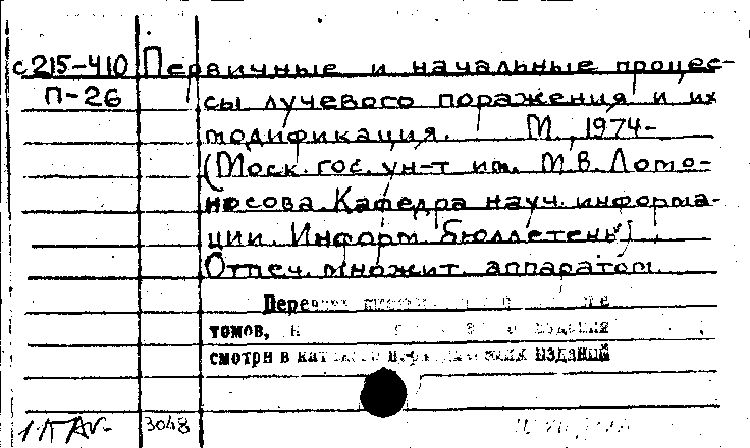 с215-410 Первичные и начальные процес-
П-26 сы лучевого поражения и их
модификация. М., 1974-
(Моск. гос. ун-т им. М.В. Ломо-
носова. Кафедра науч. информа-
ции. Информ. бюллетень).
Отпеч. множит. аппаратом.
томов,
смотри в изданий
3048